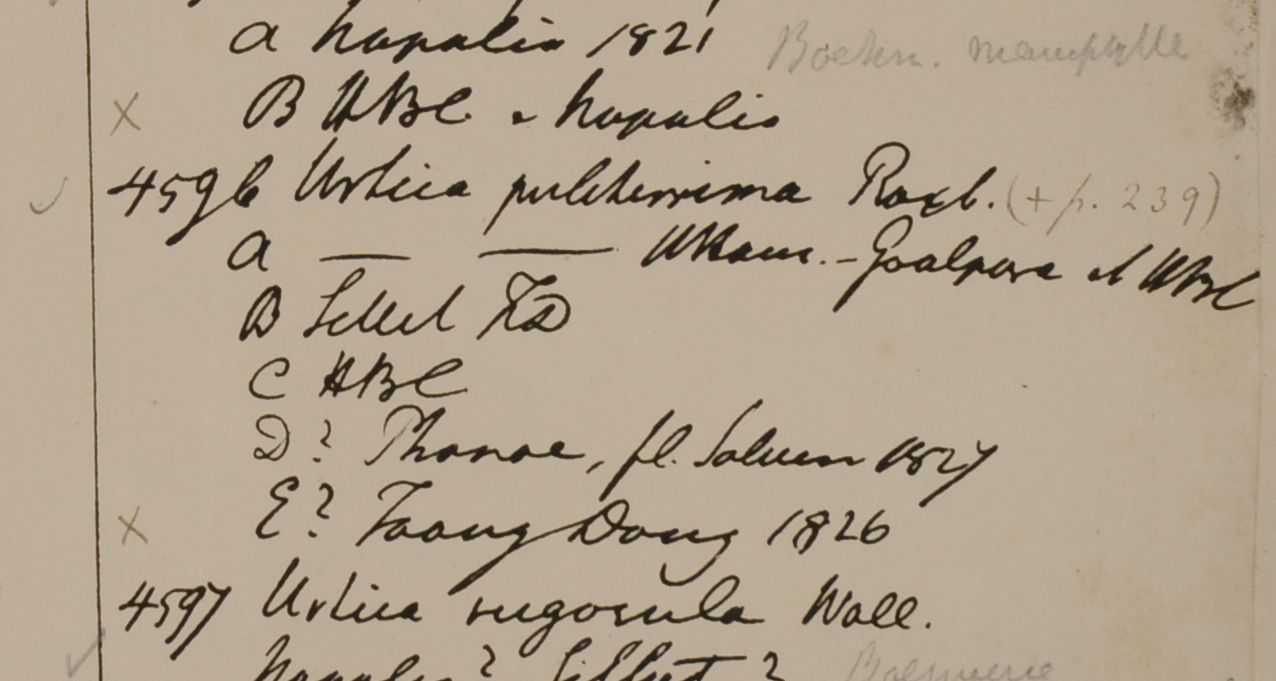 a Napalia 1821 Boehm. macrophylla
× B HBC. e Napalia
4596 Urtica pulcherrima Roxb. (+ p. 239)
a — — HHam. - Goalpara et HBC
B Sillet FD
C HBC
D? Phanoe, fl. Saluen 1827
× E? Taong Dong 1826
4597 Urtica rugosula Wall.
Napalia? Sillet? Boehmeria